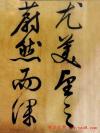 尤美望之
蔚然而深